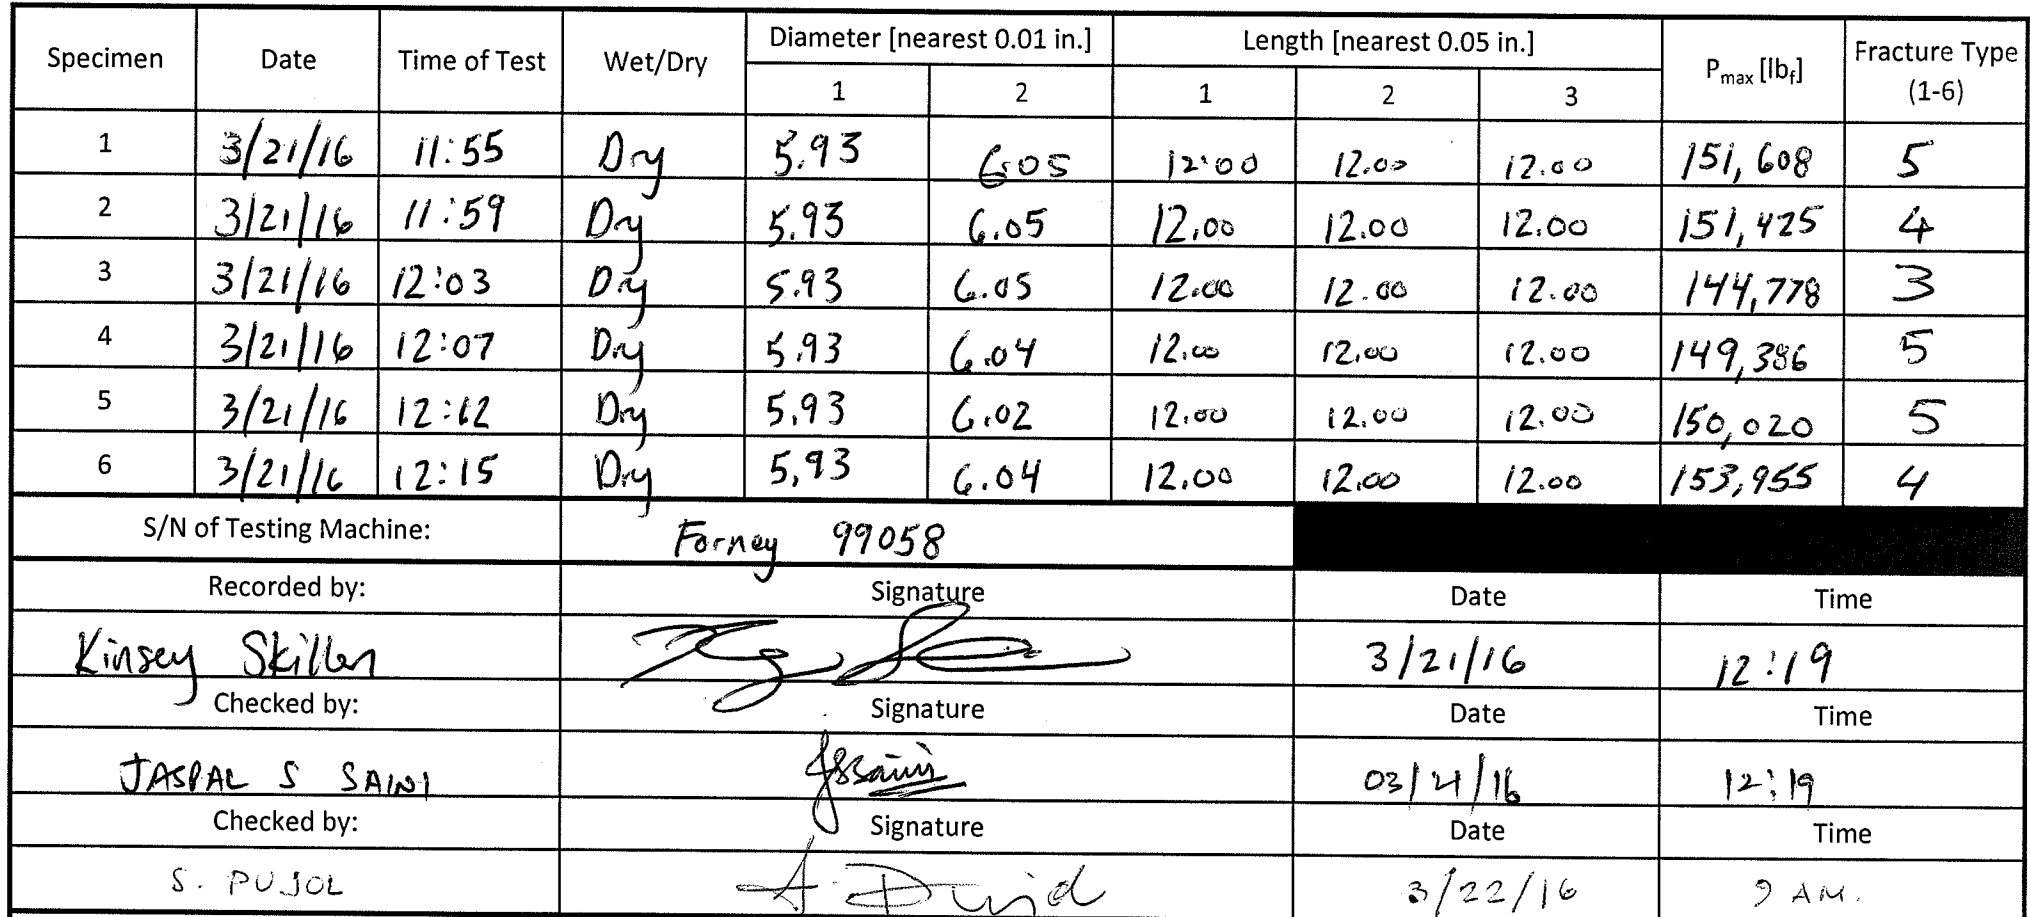 Specimen Date Time of Test Wet/Dry Diameter [nearest 0.01 in.] Length [nearest 0.05 in.] Pmax [lbf] Fracture Type (1-6)
1 2 1 2 3
1 3/21/16 11:55 Dry 5.93 6.05 12.00 12.00 12.00 151,608 5
2 3/21/16 11:59 Dry 5.93 6.05 12.00 12.00 12.00 151,425 4
3 3/21/16 12:03 Dry 5.93 6.05 12.00 12.00 12.00 144,778 3
4 3/21/16 12:07 Dry 5.93 6.04 12.00 12.00 12.00 149,386 5
5 3/21/16 12:12 Dry 5.93 6.02 12.00 12.00 12.00 150,020 5
6 3/21/16 12:15 Dry 5.93 6.04 12.00 12.00 12.00 153,955 4
S/N of Testing Machine: Forney 99058
Recorded by: Signature Date Time
Kinsey Skillen 3/21/16 12:19
Checked by: Signature Date Time
JASPAL S SAINI JSSaini 03/21/16 12:19
Checked by: Signature Date Time
S. PUJOL 3/22/16 9 AM.